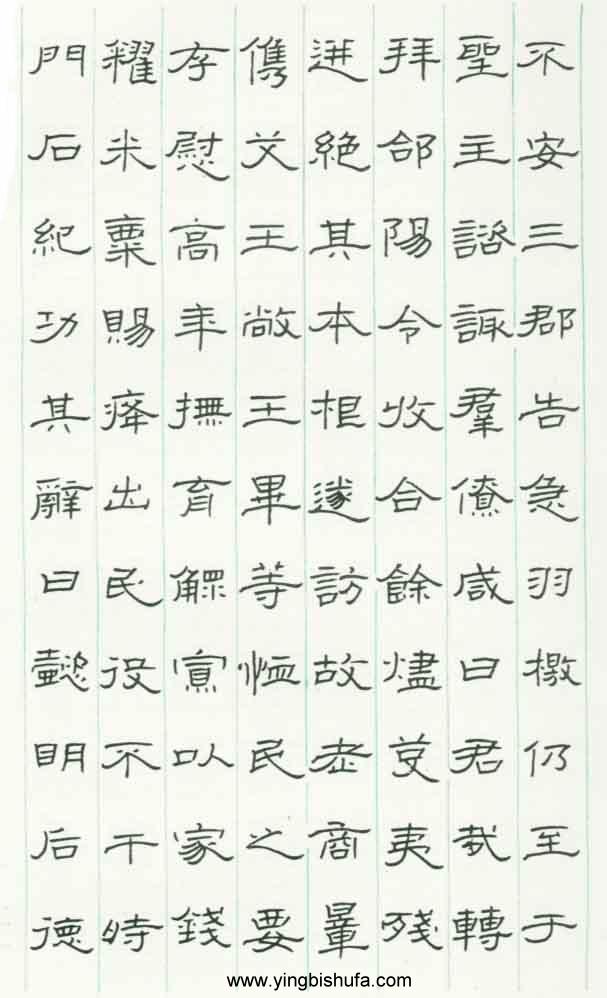 不安三郡告急羽檄仍至于
聖主諮諏羣僚咸曰君哉轉
拜郃陽令收合餘燼芟夷殘
迸絕其本根遂訪故老商量
儁艾王敞王畢等恤民之要
存慰高年撫育鰥寡以家錢
糴米粟賜癃出民役不干時
門石紀功其辭曰懿明后德
www.yingbishufa.com